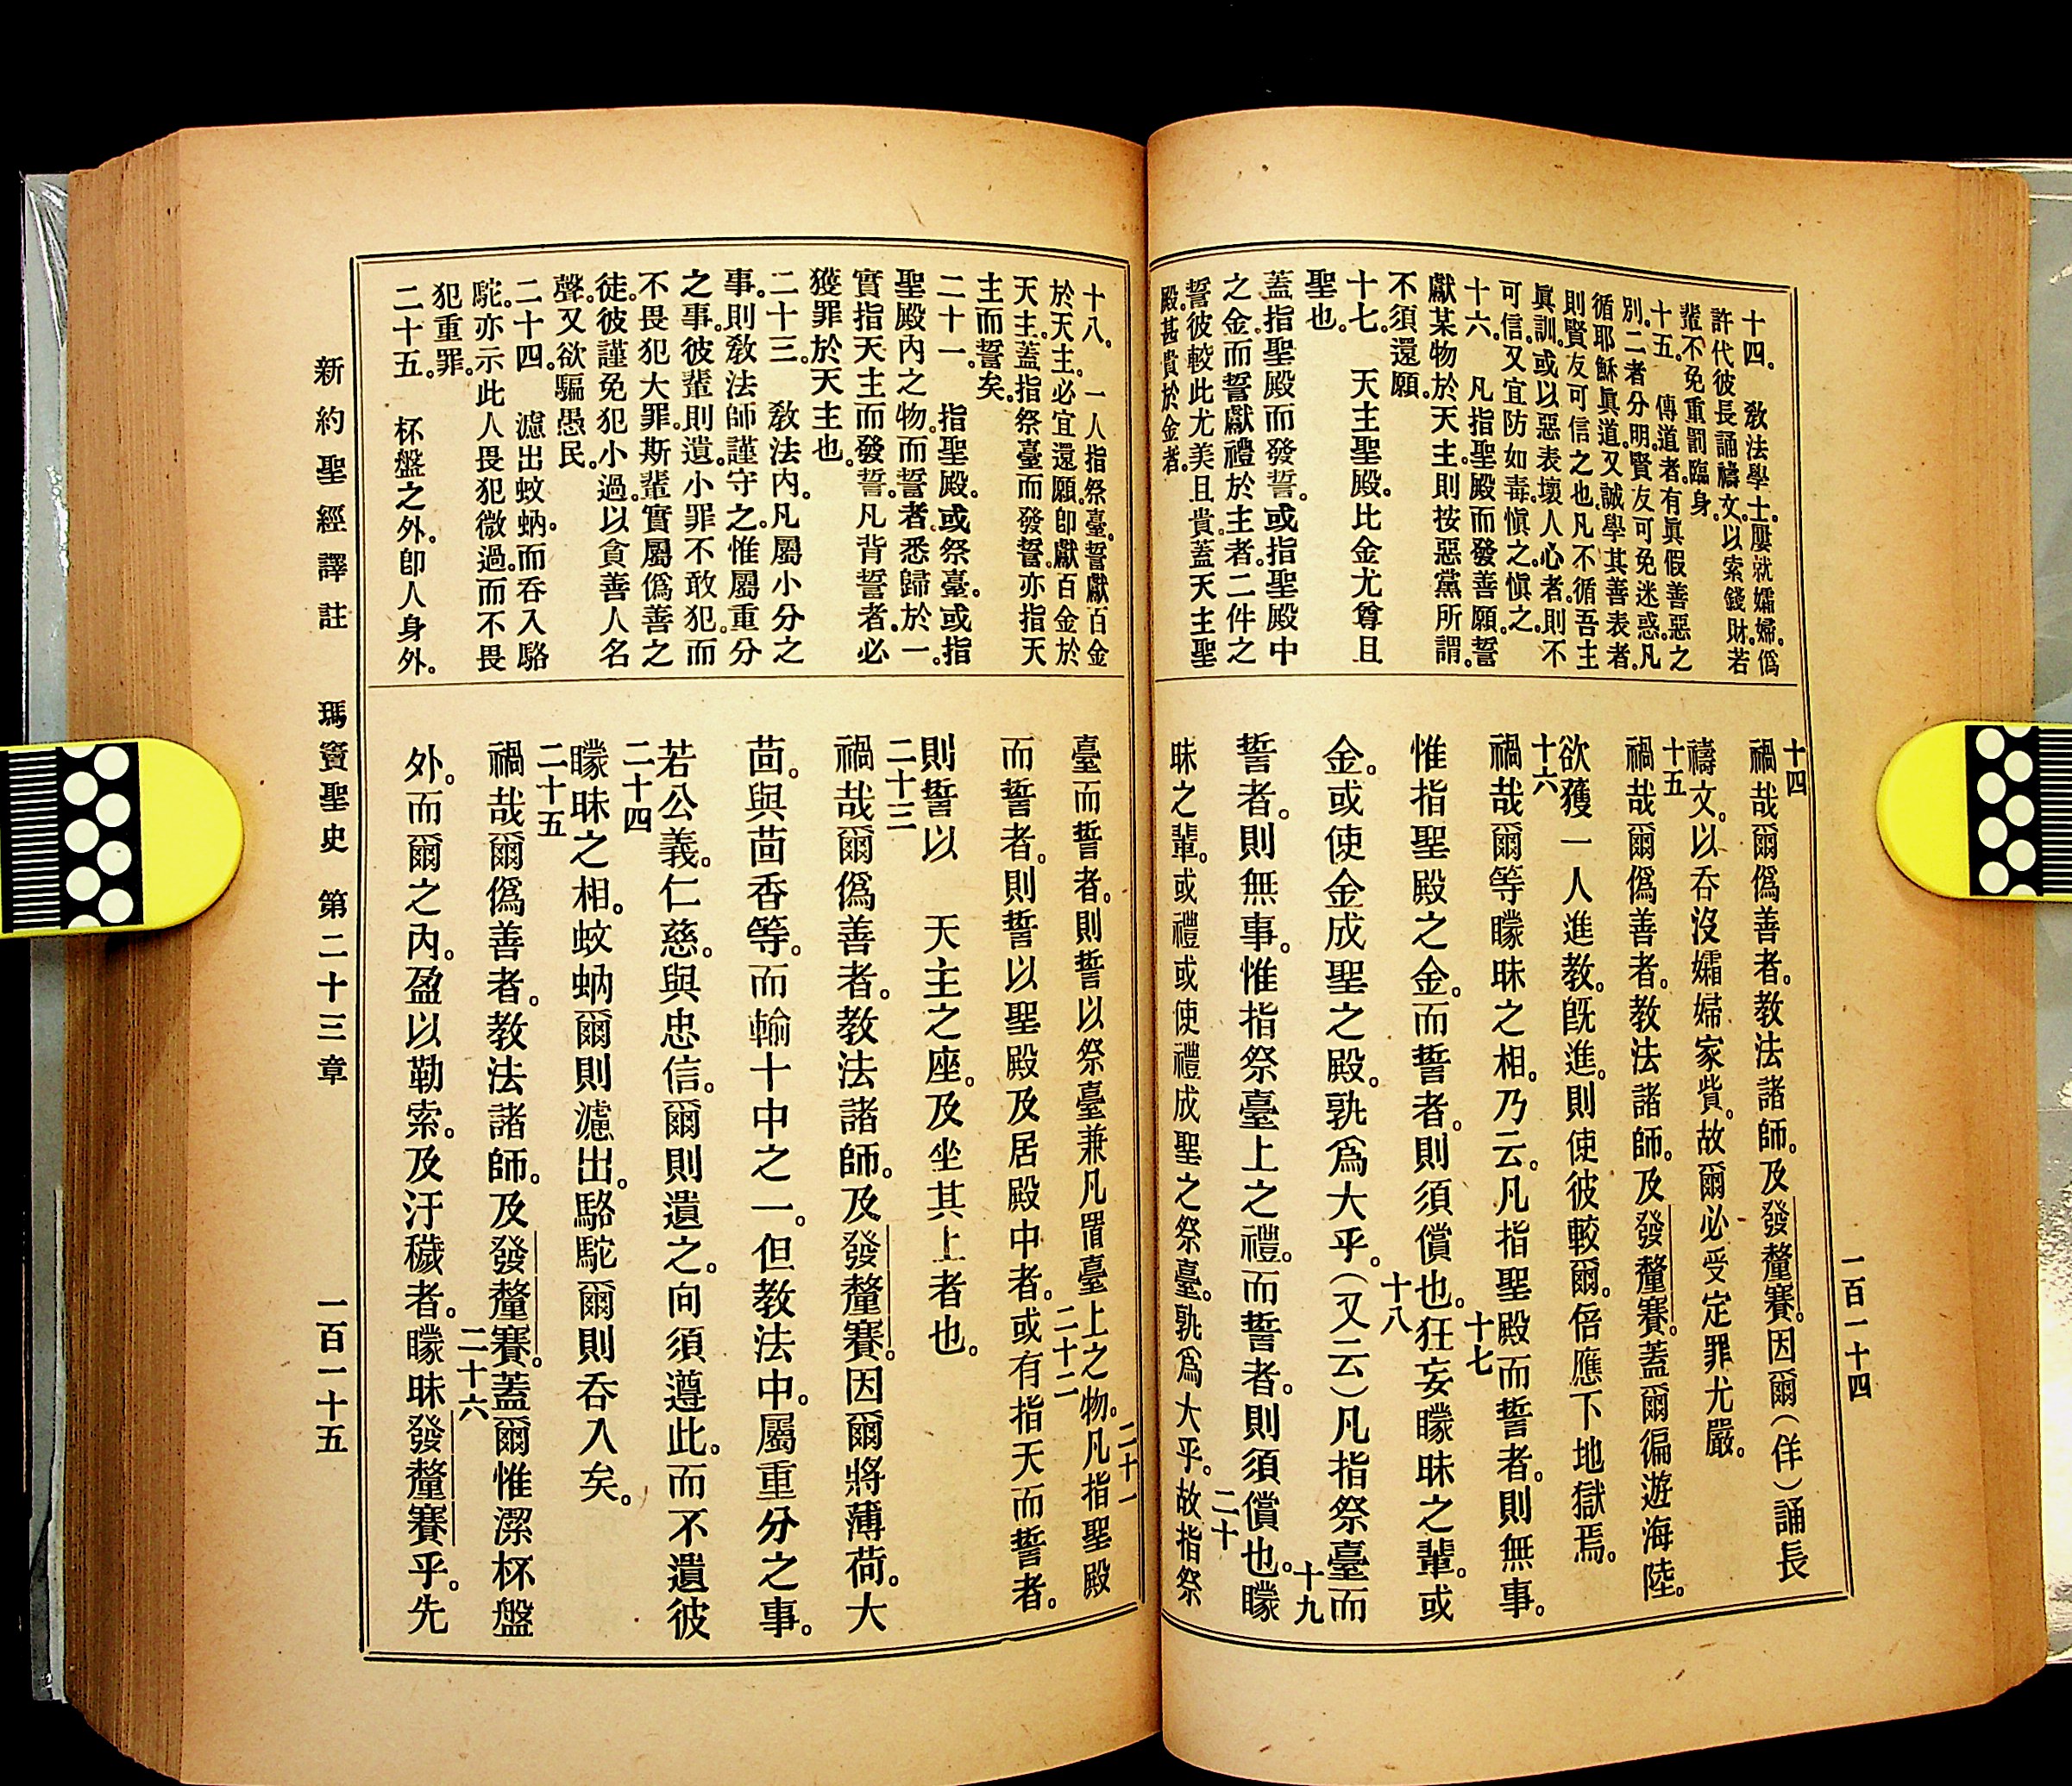 一百一十四
十四。　教法學士。屢就孀婦。僞
許代彼長誦禱文。以索錢財。若
輩不免重罰臨身。
十五。　傳道者。有眞假善惡之
別。二者分明。賢友可免迷惑。凡
循耶穌眞道。又誠學其善表者。
則賢友可信之也。凡不循吾主
眞訓。或以惡表壞人心者。則不
可信。又宜防如毒。愼之愼之。
十六。　凡指聖殿而發善願。誓
獻某物於天主。則按惡黨所謂。
不須還願。
十七。　天主聖殿。比金尤尊且
聖也。
蓋指聖殿而發誓。或指聖殿中
之金。而誓獻禮於主者。二件之
誓。彼較此尤美且貴。蓋天主聖
殿。甚貴於金者。
十四
禍哉爾僞善者。教法諸師。及發釐賽。因爾(佯)誦長
禱文。以吞沒孀婦家貲。故爾必受定罪尤嚴。
十五
禍哉爾僞善者。教法諸師。及發釐賽。蓋爾徧遊海陸。
欲獲一人進教。旣進。則使彼較爾。倍應下地獄焉。
十六
禍哉爾等矇昧之相。乃云。凡指聖殿而誓者。則無事。
十七
惟指聖殿之金。而誓者。則須償也。狂妄矇昧之輩。或
十八
金。或使金成聖之殿。孰爲大乎。(又云)凡指祭臺而
十九
誓者。則無事。惟指祭臺上之禮。而誓者。則須償也。矇
二十
昧之輩。或禮或使禮成聖之祭臺。孰爲大乎。故指祭
十八。　一人指祭臺。誓獻百金
於天主。必宜還願。卽獻百金於
天主。蓋指祭臺而發誓。亦指天
主而誓矣。
二十一。　指聖殿。或祭臺。或指
聖殿內之物。而誓者。悉歸於一。
實指天主而發誓。凡背誓者。必
獲罪於天主也。
二十三。　敎法內。凡屬小分之
事。則敎法師謹守之。惟屬重分
之事。彼輩則遺。小罪不敢犯。而
不畏犯大罪。斯輩實屬僞善之
徒。彼謹免犯小過。以貪善人名
聲。又欲騙愚民。
二十四。　濾出蚊蚋。而吞入駱
駝。亦示此人畏犯微過。而不畏
犯重罪。
二十五。　杯盤之外。卽人身外。
二十一
臺而誓者。則誓以祭臺兼凡置臺上之物。凡指聖殿
二十二
而誓者。則誓以聖殿及居殿中者。或有指天而誓者。
則誓以　天主之座。及坐其上者也。
二十三
禍哉爾僞善者。教法諸師。及發釐賽。因爾將薄荷。大
茴。與茴香等。而輸十中之一。但教法中。屬重分之事。
若公義。仁慈。與忠信。爾則遺之。向須遵此。而不遺彼
二十四
矇昧之相。蚊蚋爾則濾出。駱駝爾則吞入矣。
二十五
禍哉爾僞善者。教法諸師。及發釐賽。蓋爾惟潔杯盤
二十六
外。而爾之內。盈以勒索。及汙穢者。矇昧發釐賽乎。先
新約聖經譯註　瑪竇聖史　第二十三章　一百一十五